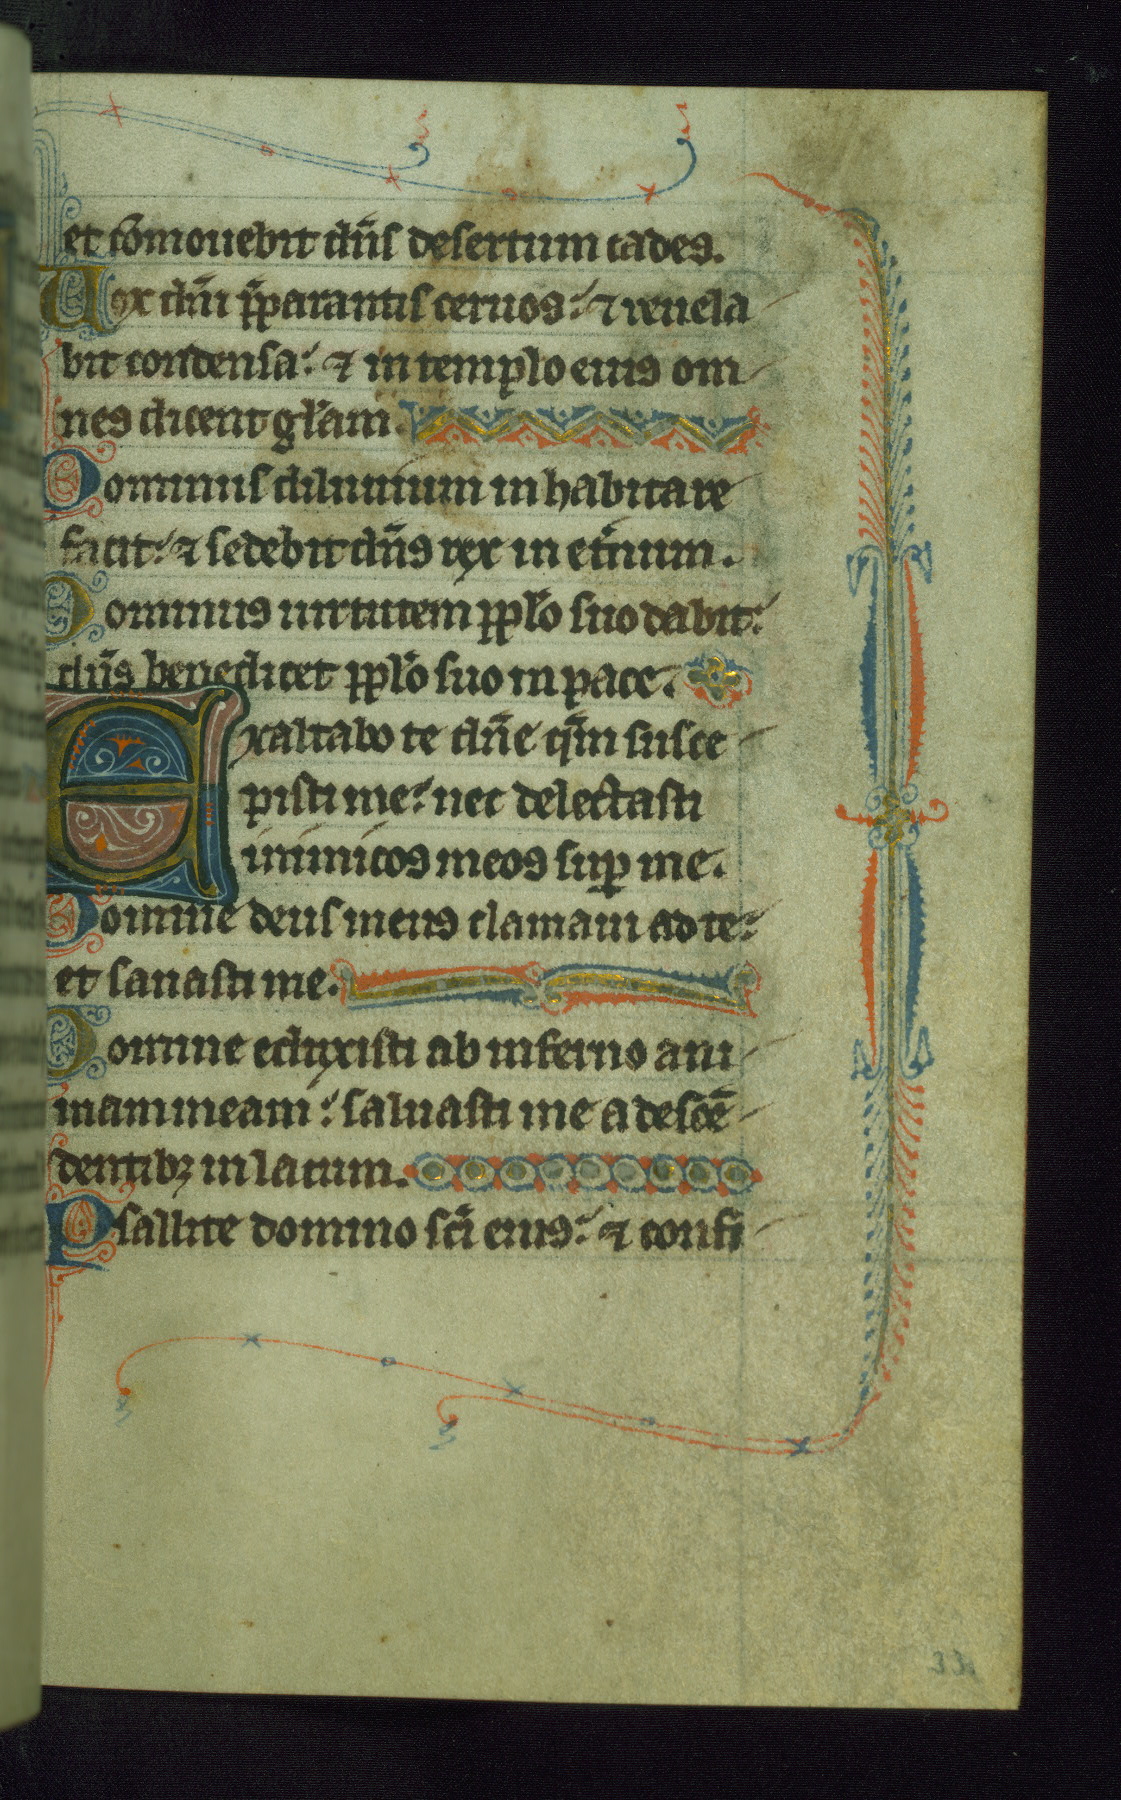 et cōmouebit dn̄s desertum cades.
Uox dn̄i p̄parantis ceruos: ⁊ reuela
bit condensa: ⁊ in templo eius om
nes dicent gl̄am.
Dominus diluuium inhabitare
facit: ⁊ sedebit dn̄s rex in et̄num.
Dominus uirtutem ppl̄o suo dabit:
dn̄s benedicet ppl̄o suo in pace.
Exaltabo te dn̄e qm̄ susce
pisti me: nec delectasti
inimicos meos sup̄ me.
Domine deus meus clamaui ad te:
et sanasti me.
Domine eduxisti ab inferno ani
mam meam: saluasti me a descē
dentibꝫ in lacum.
Psallite domino sc̄i eius: ⁊ confi
33